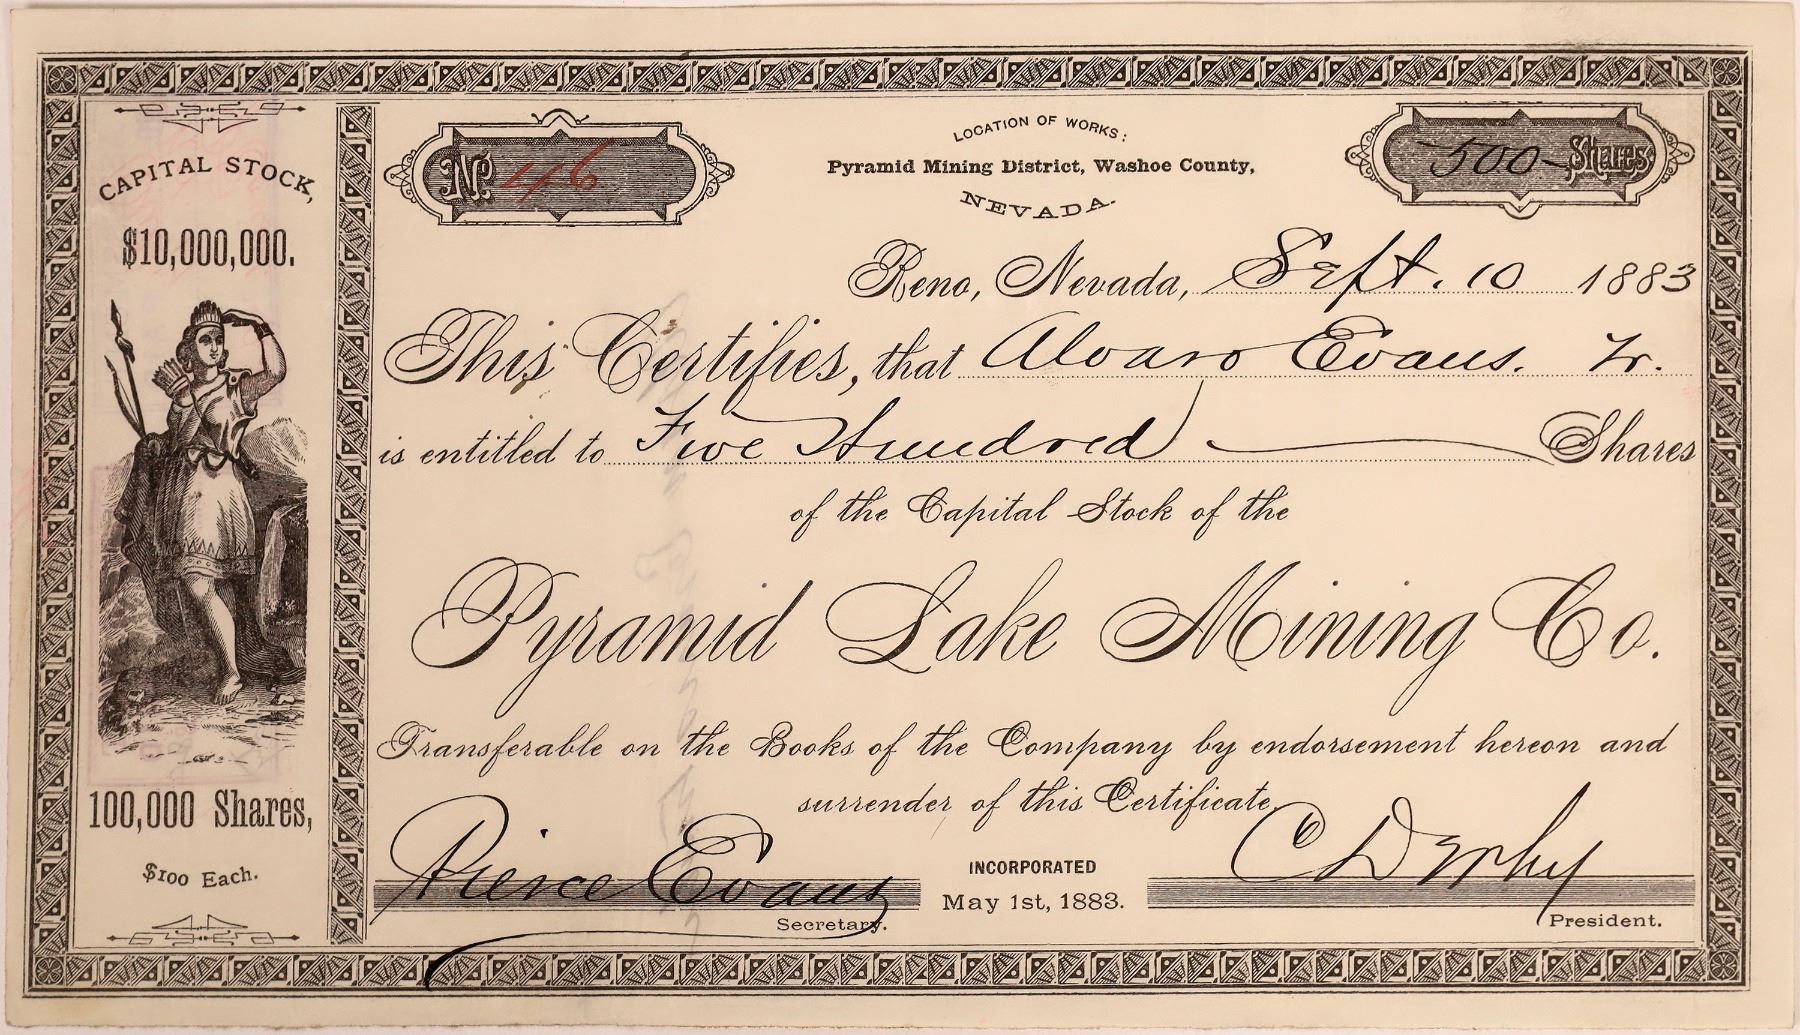 CAPITAL STOCK,
$10,000,000.
100,000 Shares,
$100 Each.
No. 46
LOCATION OF WORKS:
Pyramid Mining District, Washoe County,
NEVADA.
500 Shares
Reno, Nevada, Sept. 10 1883
This Certifies, that Alvaro Evans. Tr.
is entitled to Five Hundred Shares
of the Capital Stock of the
Pyramid Lake Mining Co.
Transferable on the Books of the Company by endorsement hereon and
surrender of this Certificate.
Pierce Evans
Secretary.
INCORPORATED
May 1st, 1883.
President.